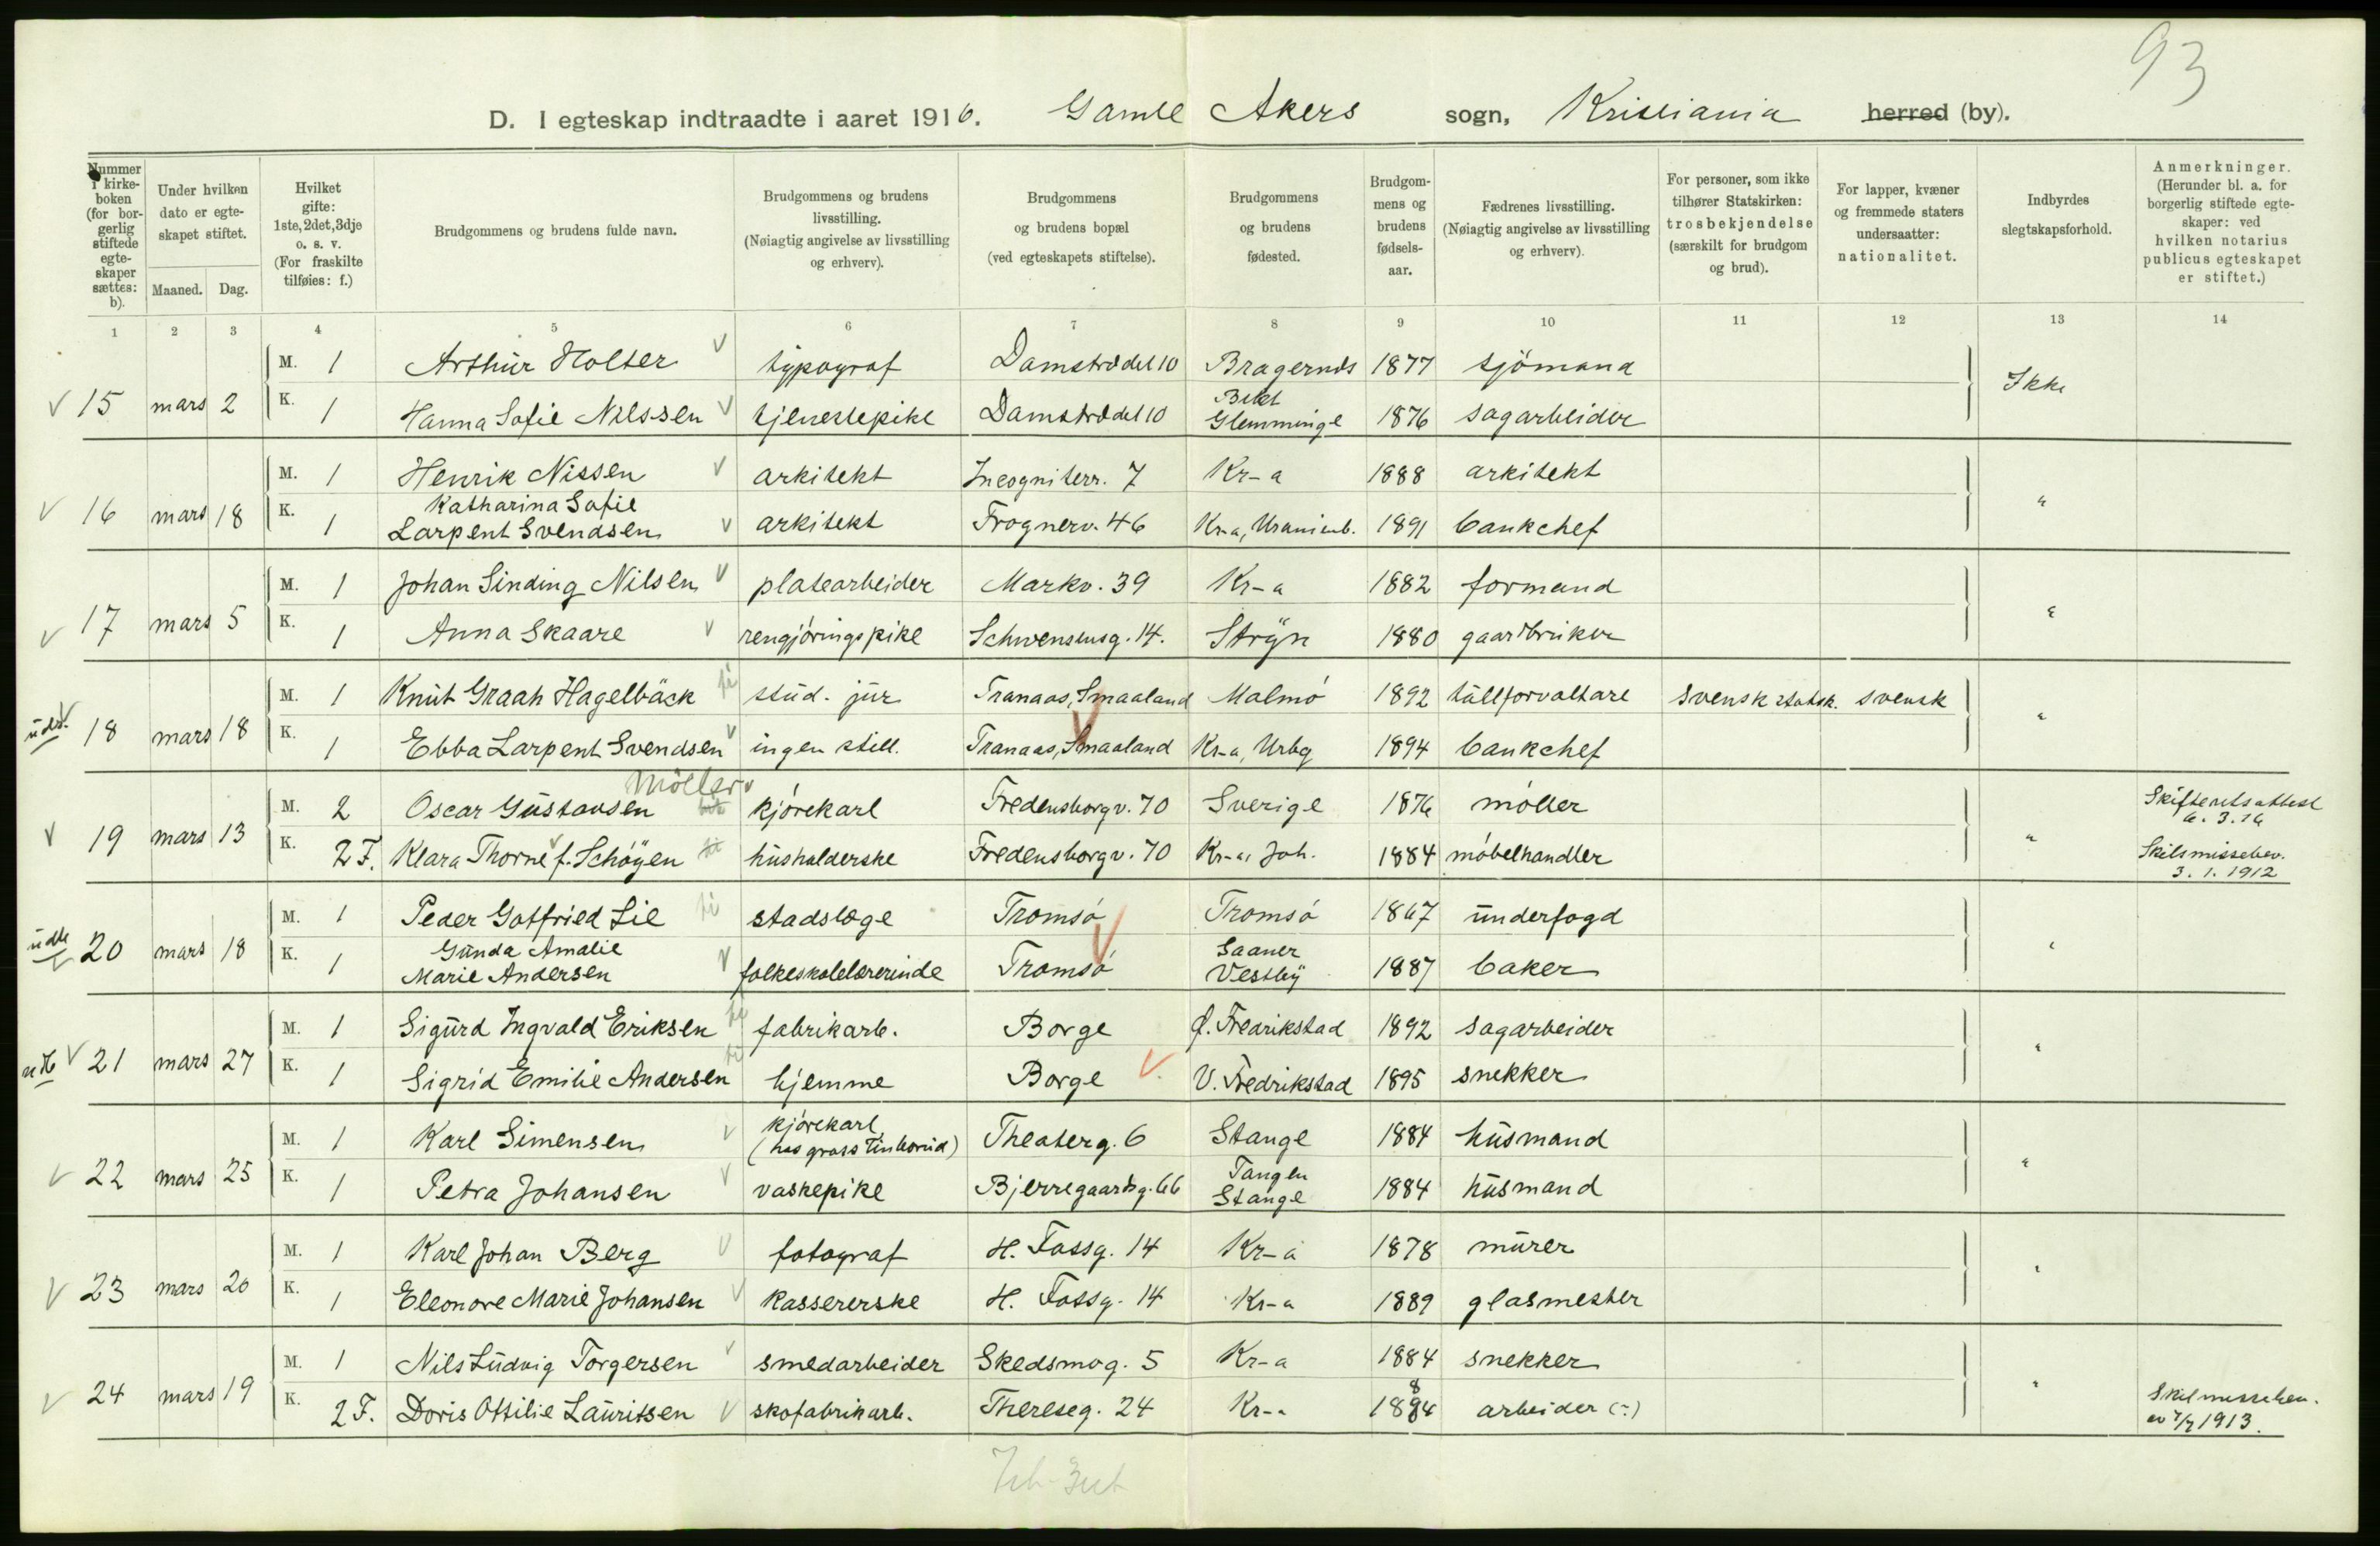 93
D. I egteskap indtraadte i aaret 1916. Gamle Akers sogn, Kristiania herred (by).
Nummer i kirke-boken (for bor-gerlig stiftede egte-skaper sættes: b).
Under hvilken dato er egte-skapet stiftet.
Maaned. Dag.
Hvilket gifte: 1ste, 2det, 3dje o. s. v. (For fraskilte tilføies: f.)
Brudgommens og brudens fulde navn.
Brudgommens og brudens livsstilling. (Nøiagtig angivelse av livsstilling og erhverv).
Brudgommens og brudens bopæl (ved egteskapets stiftelse).
Brudgommens og brudens fødested.
Brudgom-mens og brudens fødsels-aar.
Fædrenes livsstilling. (Nøiagtig angivelse av livsstilling og erhverv).
For personer, som ikke tilhører Statskirken: trosbekjendelse (særskilt for brudgom og brud).
For lapper, kvæner og fremmede staters undersaatter: nationalitet.
Indbyrdes slegtskapsforhold.
Anmerkninger. (Herunder bl. a. for borgerlig stiftede egte-skaper: ved hvilken notarius publicus egteskapet er stiftet.)
1 2 3 4 5 6 7 8 9 10 11 12 13 14
M. 1 Arthur Holter typograf Damstrædet 10 Bragernæs 1877 sjömand
15 mars 2 Ikke
K. 1 Hanna Sofie Nilssen tjenestepike Damstrædet 10 Glemminge 1876 sagarbeider
M. 1 Henrik Nissen arkitekt Incogniterr. 7 Kr-a 1888 arkitekt
16 mars 18 "
K. 1 Katharina Sofie
Larpent Svendsen arkitekt Frognerv. 46 Kr-a, Uranienb. 1891 bankchef
M. 1 Johan Sinding Nilsen platearbeider Markv. 39 Kr-a 1882 formand
17 mars 5 "
K. 1 Anna Skaare rengjöringspike Schwensensg. 14. Stryn 1880 gaardbruker
M. 1 Knut Graah Hagelbäck stud. jur Tranaas, Smaaland Malmö 1892 tullforvaltare svensk statsk. svensk
18 mars 18 "
K. 1 Ebba Larpent Svendsen ingen still. Tranaas, Smaaland Kr-a, Urbg 1894 bankchef
Möller
M. 2 Oscar Gustavsen kjörekarl Fredensborgv. 70 Sverige 1876 möller Skifteretsattest
6. 3. 16
19 mars 13 "
K. 2 F. Klara Thorne f. Schöyen husholderske Fredensborgv. 70 Kr-a, Joh. 1884 möbelhandler Skilsmissebev.
3. 1. 1912
M. 1 Peder Gotfried Lie stadslæge Tromsö Tromsö 1867 underfogd
20 mars 18 "
K. 1 Gunda Amalie
Marie Andersen folkeskolelærerinde Tromsö Saaner
Vestby 1887 baker
M. 1 Sigurd Ingvald Eriksen fabrikarb. Borge Ø. Fredrikstad 1892 sagarbeider
21 mars 27 "
K. 1 Sigrid Emilie Andersen hjemme Borge V. Fredrikstad 1895 snekker
M. 1 Karl Simensen kjörekarl Theaterg. 6 Stange 1884 husmand
22 mars 25 "
K. 1 Petra Johansen vaskepike Bjerregaardsg. 66 Tangen
Stange 1884 husmand
M. 1 Karl Johan Berg fotograf H. Fossg. 14 Kr-a 1878 murer
23 mars 20 "
K. 1 Eleonore Marie Johansen kassererske H. Fossg. 14 Kr-a 1889 glasmester
M. 1 Nils Ludvig Torgersen smedarbeider Skedsmog. 5 Kr-a 1884 snekker
24 mars 19 "
K. 2 F. Doris Ottilie Lauritsen skofabrikarb. Thereseg. 24 Kr-a 1884 arbeider (?) Skilsmissebev.
1913.